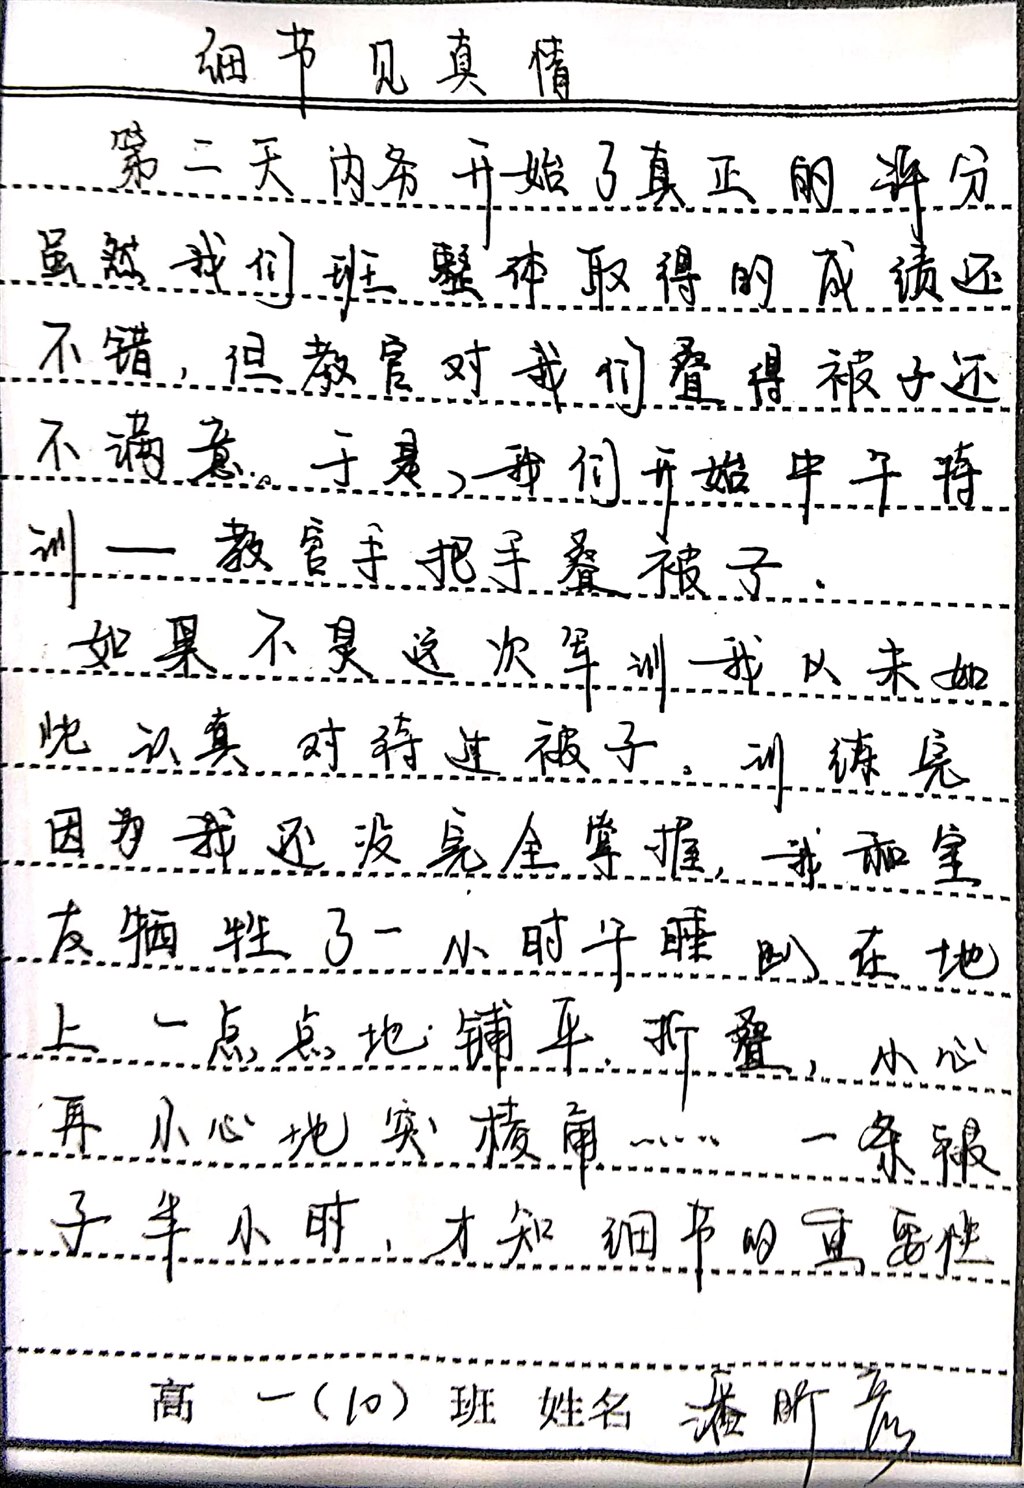 细节见真情
第二天内务开始了真正的评分
虽然我们班整体取得的成绩还
不错，但教官对我们叠得被子还
不满意。于是，我们开始中午特
训——教官手把手叠被子.
如果不是这次军训我从未如
此认真对待过被子。训练完
因为我还没完全掌握，我和室
友牺牲了一小时午睡趴在地
上一点点地铺平.折叠，小心
再小心地突棱角……一条被
子半小时，才知细节的重要性
高一(10)班 姓名 潘昕彦